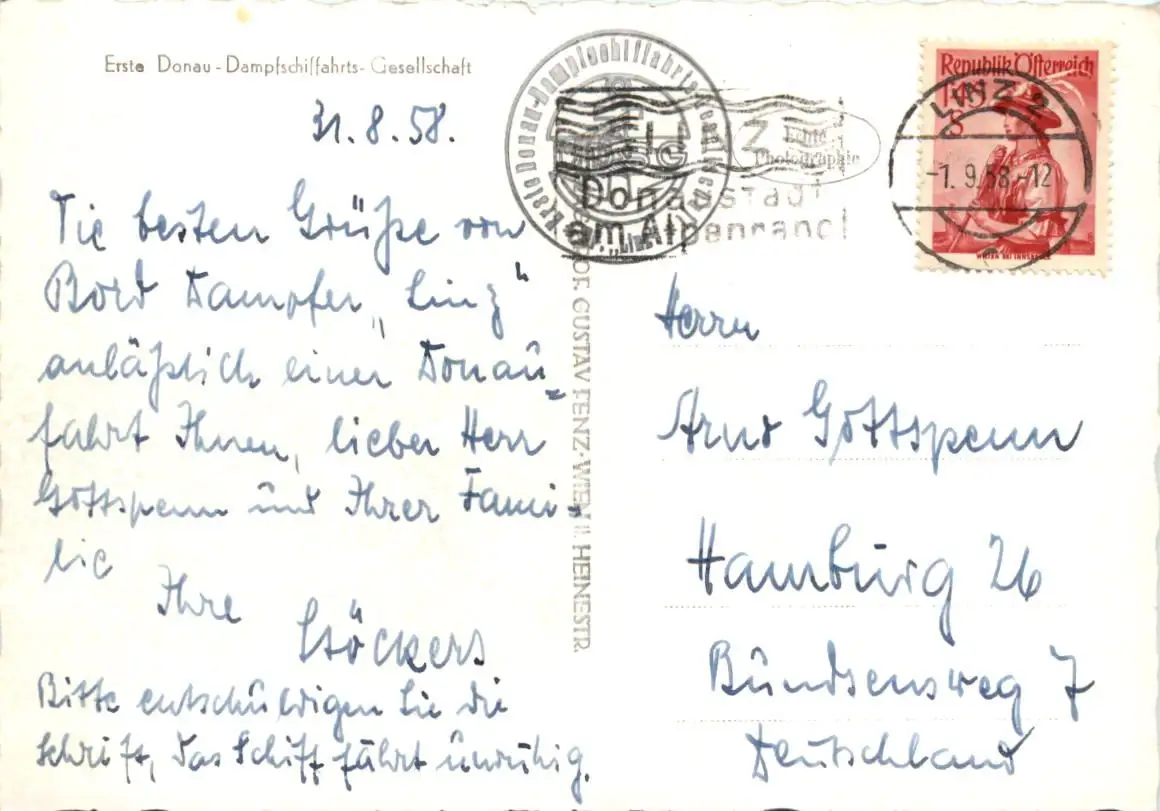 Erste Donau-Dampfschiffahrts-Gesellschaft
31.8.58.
Die besten Grüße von
Bord Dampfer „Linz“
anläßlich einer Donau=
fahrt Ihnen, lieber Herr
Gottspenn und Ihrer Fami=
lie
Ihre
Stöckers
Bitte entschuldigen Sie die
Schrift, das Schiff fährt unruhig.
GUSTAV FENZ·WIEN II. HEINESTR.
Erste Donau-Dampfschiffahrts
Echte
Photographie
Donaustadt
am Alpenrand
Republik Österreich
LINZ 2
-1. 9. 58.-12
Herrn
Arno Gottspenn
Hamburg 26
Bundsensweg 7
Deutschland